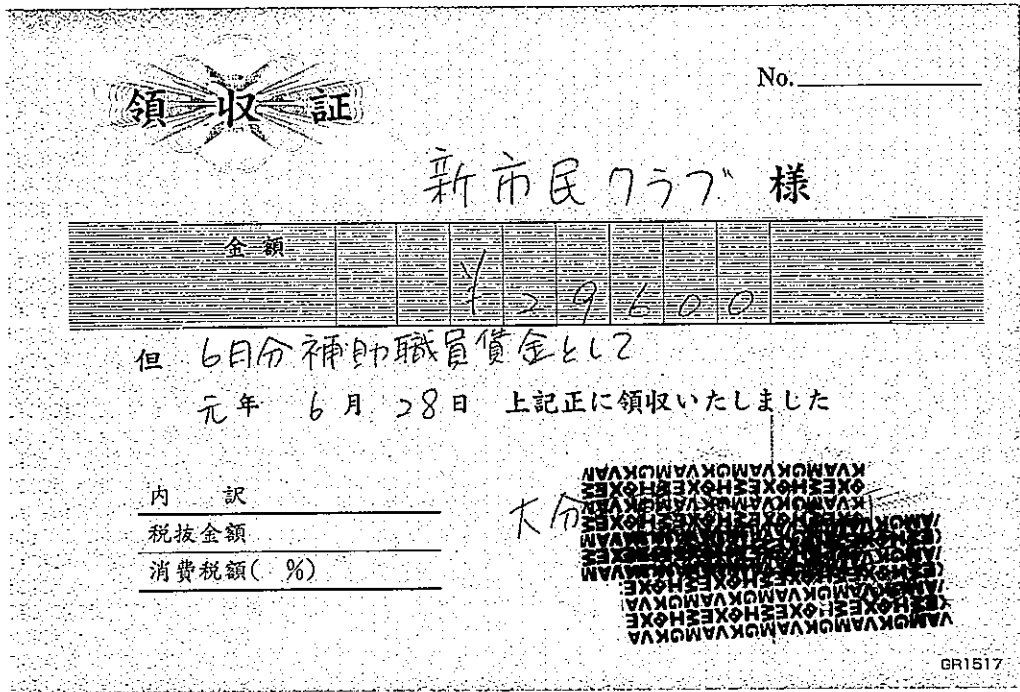 領収証
No.
新市民クラブ 様
金額 ¥29600
但 6月分補助職員賃金として
元年 6月 28日 上記正に領収いたしました
内 訳
大分
税抜金額
消費税額( %)
GR1517